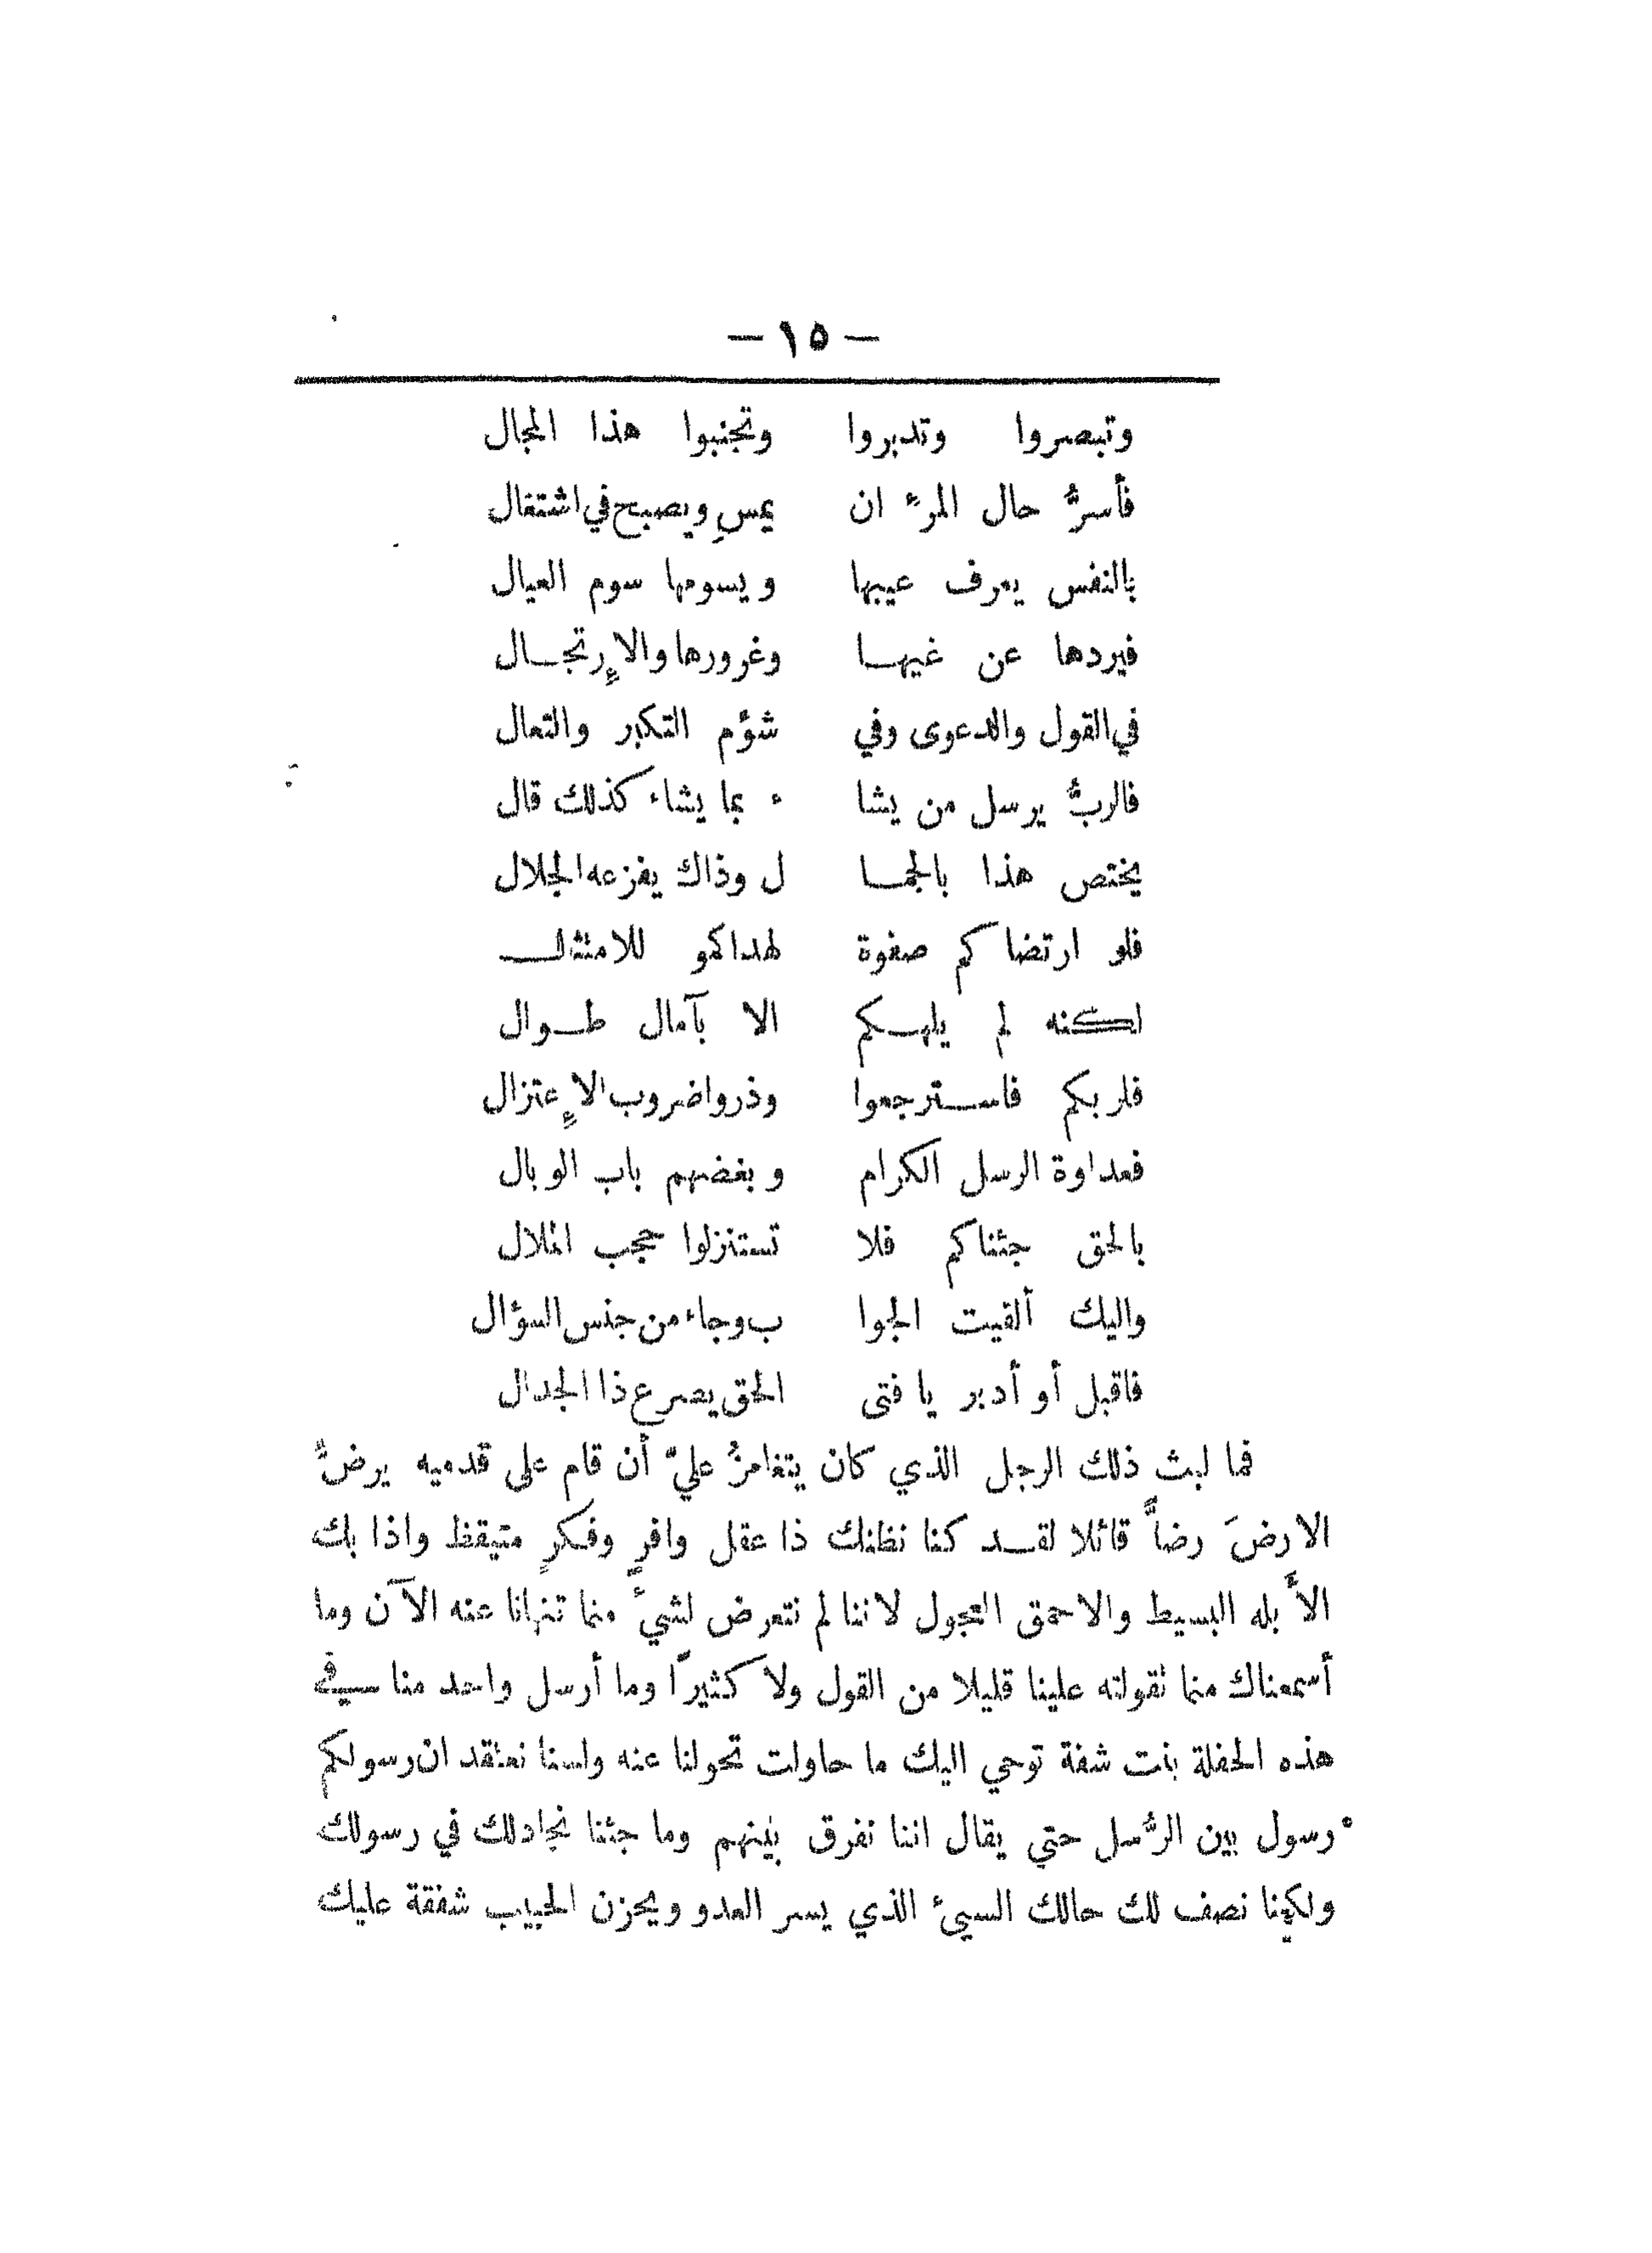 — ١٥ —
وتبصروا وتدبروا وتجنبوا هذا المجال
فأسرُّ حال المرء ان يمسِ ويصبح في اشتغال
بالنفس يعرف عيبها ويسومها سوم العيال
فيردها عن غيهـا وغرورها والاٍرتجـال
في القول والدعوى وفي شؤم التكبر والتعال
فالربُّ يرسل من يشا ء بما يشاء كذلك قال
يختص هذا بالجمـا ل وذاك يفزعه الجلال
فلو ارتضاكم صفوة لهداكمو للامتثال
لكنه لم يلهـكم الا بآمال طـوال
فلربكم فاسـترجعوا وذروا ضروب الإعتزال
فعداوة الرسل الكرام وبغضهم باب الوبال
بالحق جئناكم فلا تستنزلوا حجب الملال
واليك ألقيت الجوا ب وجاء من جنس السؤال
فاقبل أو أدبر يا فتى الحق يصرع ذا الجدال
فما لبث ذلك الرجل الذي كان يتغامزُ عليّ أن قام على قدميه يرضُّ
الارضَ رضاًّ قائلا لقـد كنا نظنك ذا عقل وافرٍ وفكرٍ متيقظ واذا بك
الأَبله البسيط والاحمق العجول لاننا لم نتعرض لشيءٍ منما تنهانا عنه الآن وما
أسمعناك منما تقولته علينا قليلا من القول ولا كثيرًا وما أرسل واحد منا سيفي
هذه الحفلة بنت شفة توحي اليك ما حاولت تحولنا عنه ولسنا نعتقد ان رسولكم
رسول بين الرُّسل حتي يقال اننا نفرق بينهم وما جئنا نجادلك في رسولك
ولكننا نصف لك حالك السيئ الذي يسر العدو ويحزن الحبيب شفقة عليك